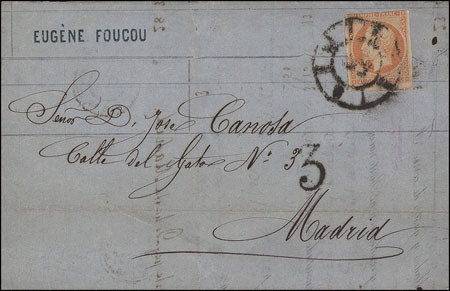 EUGÈNE FOUCOU
Señor D. Jose Canosa
Calle del Gato Nº 3
3
Madrid